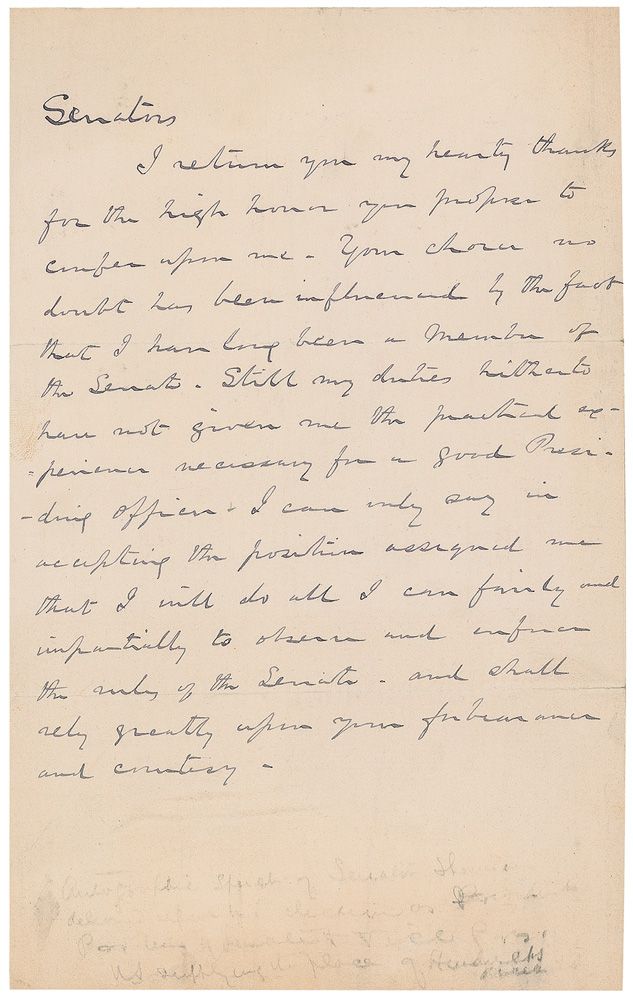 Senators
I return you my hearty thanks
for the high honor you propose to
confer upon me - Your choice no
doubt has been influenced by the fact
that I have long been a member of
the Senate - Still my duties hitherto
have not given me the practical ex-
-perience necessary for a good Presi-
-ding officer - I can only say in
accepting the position assigned me
that I will do all I can fairly and
impartially to observe and enforce
the rules of the Senate - and shall
rely greatly upon your forbearance
and courtesy -
Autographic Speech of Senator
election as
place of